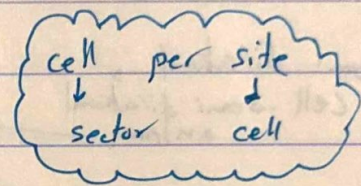 cell per site
↓ ↓
sector cell